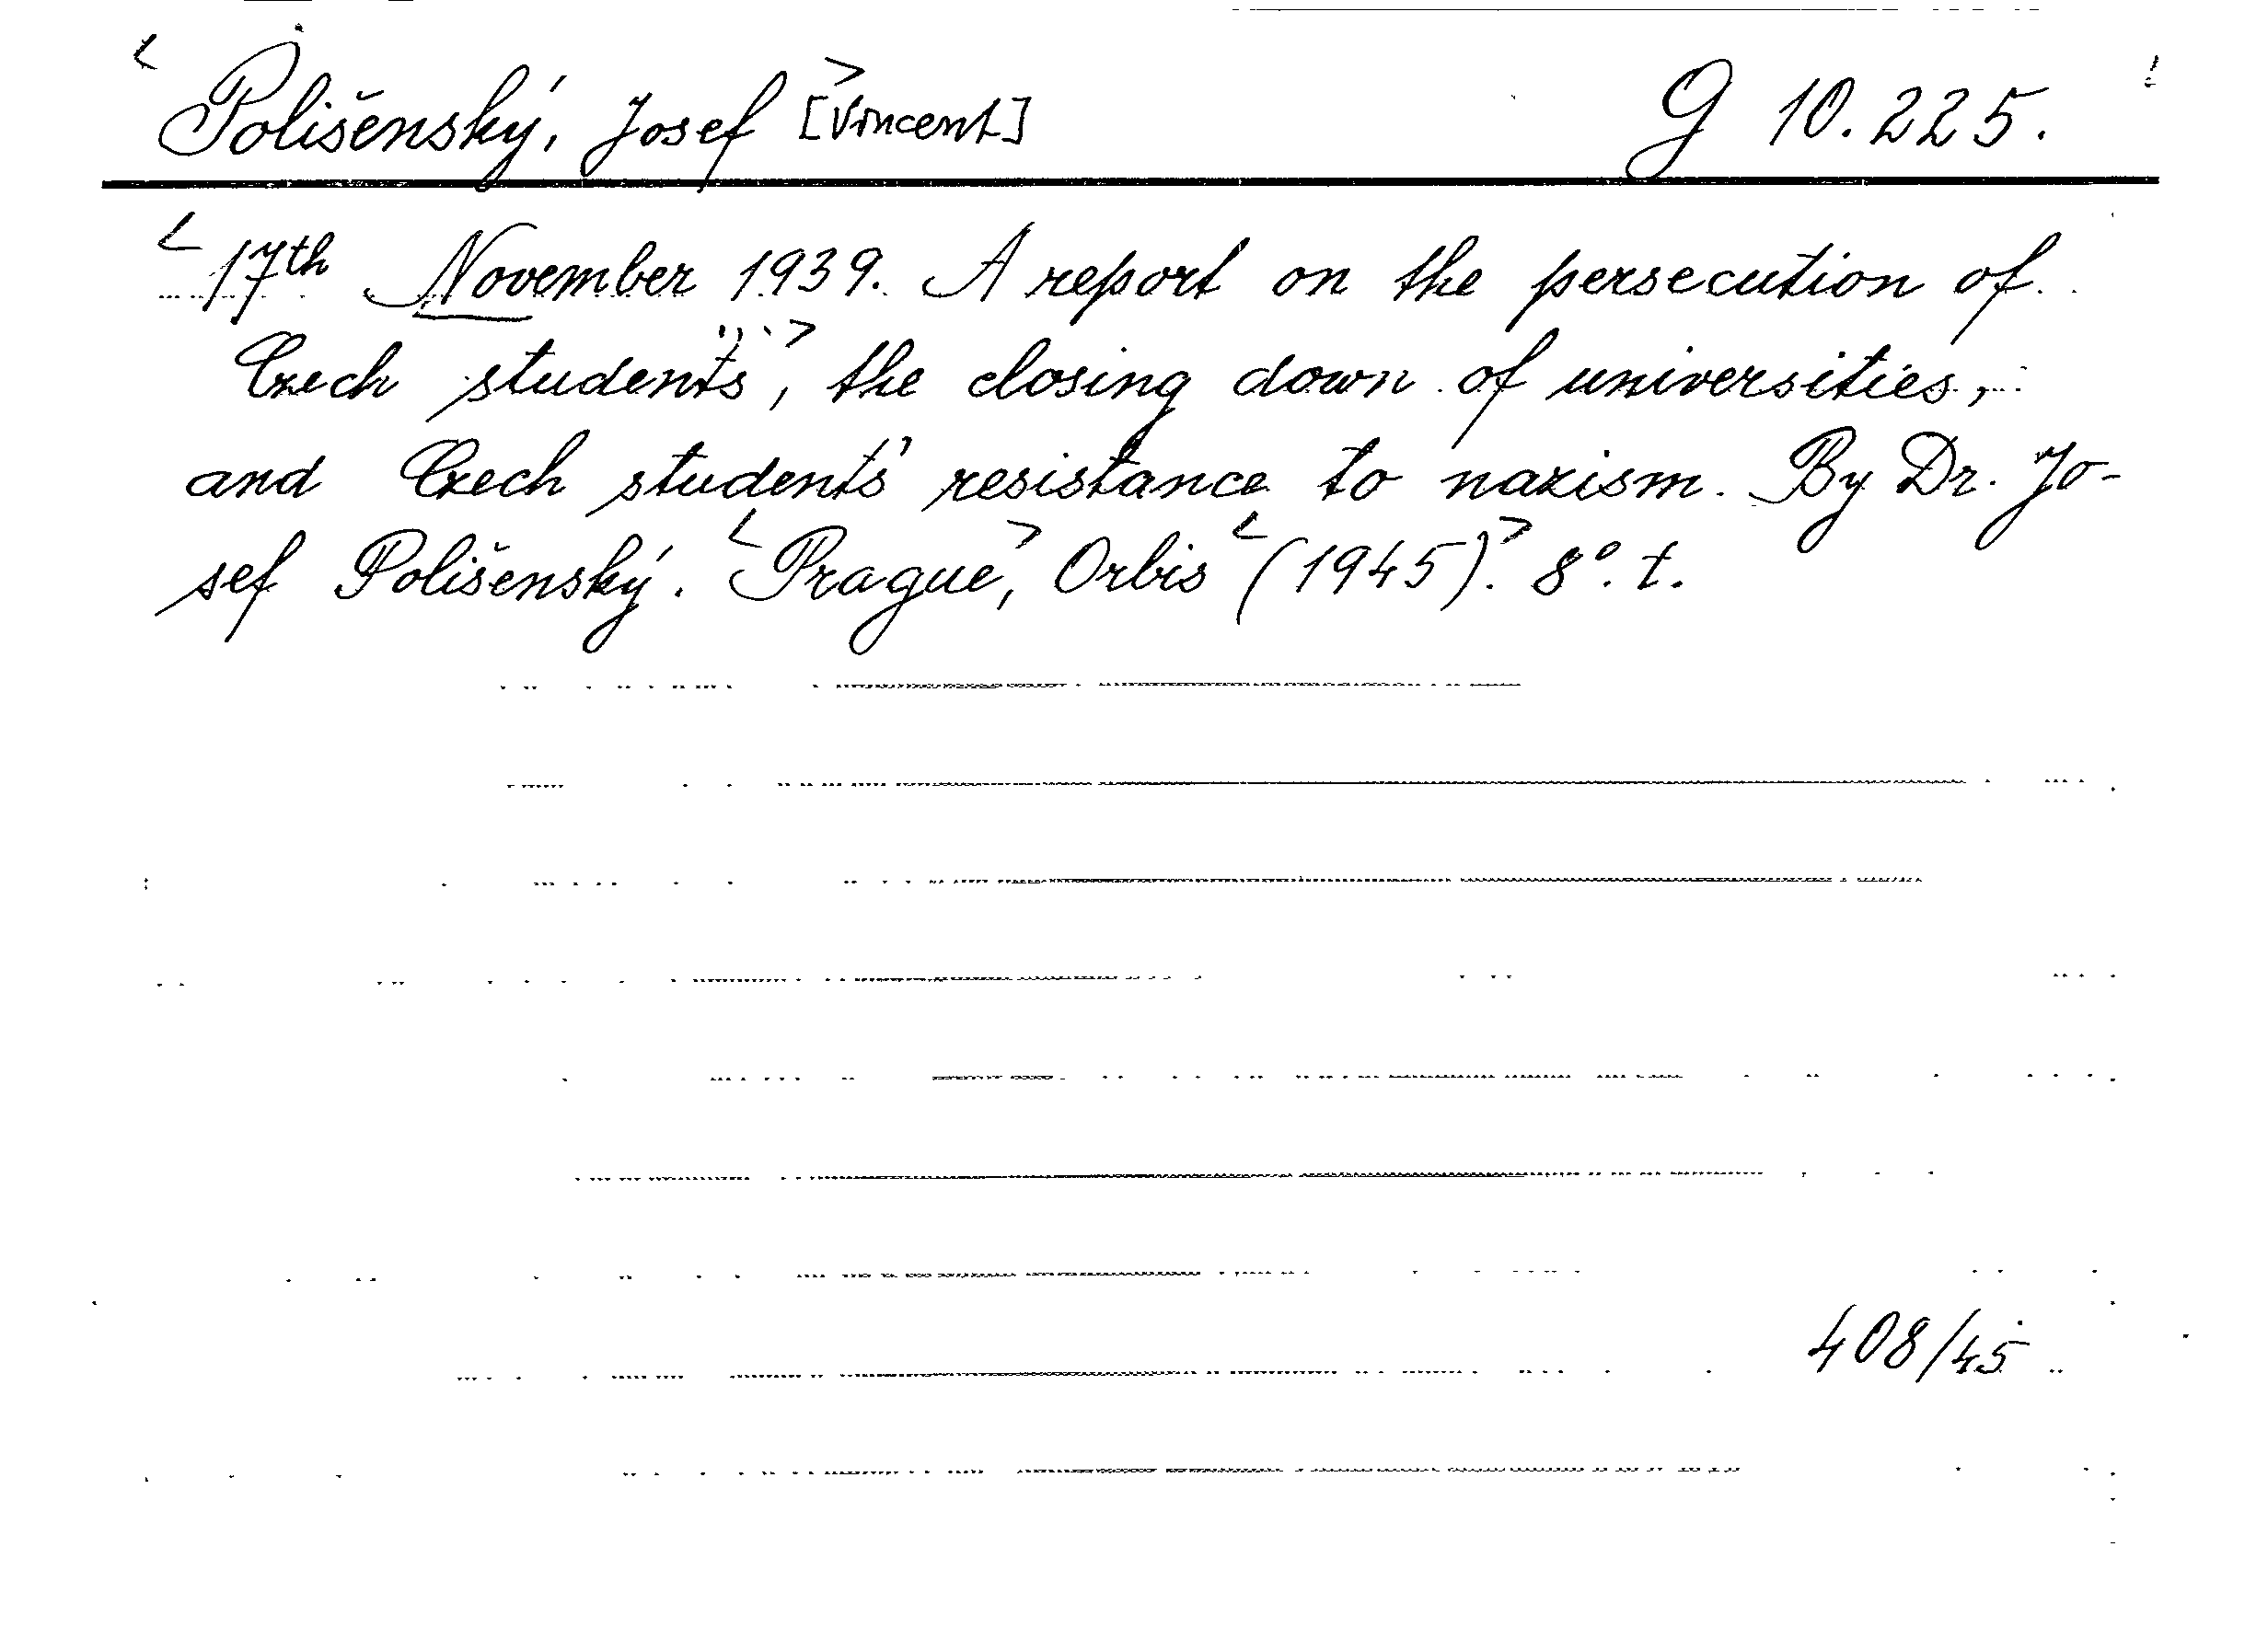 < Polišenský, Josef > [Vincent] G 10.225.
< 17th November 1939. A report on the persecution of
Czech students', ... > the closing down of universities,
and Czech students' resistance to nazism. By Dr. Jo-
sef Polišenský. < Prague, > Orbis < (1945). > 8°. t.
408/45